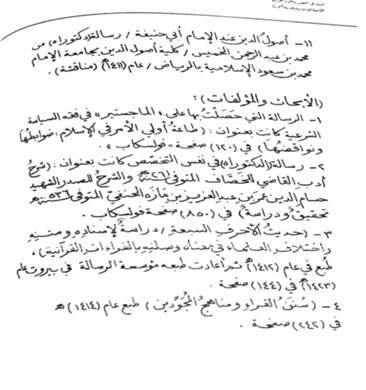 ١١- أصول الدين عند الإمام أبي حنيفة / رسالة (دكتوراه) من
محمد بن عبد الرحمن الخميس / كلية أصول الدين بجامعة الإمام
محمد بن سعود الإسلامية بالرياض / عام (١٤١١هـ) (مناقشة).
(الأبحاث والمؤلفات):
١- الرسالة التي حصلتُ بها على «الماجستير» في فقه السياسة
الشرعية كانت بعنوان: (طاعة أولي الأمر في الإسلام، ضوابطها
ونواقضها) في (١٢٠) صفحة - فولسكاب.
٢- رسالة (الدكتوراه) في نفس التخصص كانت بعنوان: (شرح
أدب القاضي الخصاف المتوفى ٢٦١هـ والشرح للصدر الشهيد
حسام الدين عمر بن عبد العزيز بن مازة الحنفي المتوفى ٥٣٦هـ
تحقيق ودراسة) في (٨٥٠) صفحة فولسكاب.
٣- (حديث الأحرف السبعة / دراسة لإسناده ومتنه
واختلاف العلماء في معناه وصلته بالقراءات القرآنية)،
طُبع في عام (١٤١٢) ثم أعادت طبعه مؤسسة الرسالة في بيروت عام
(١٤٢٣هـ) في (١٤٤) صفحة.
٤- (سنن القراء ومناهج المجودين) طبع عام (١٤١٤) هـ
في (٢٤٢) صفحة.